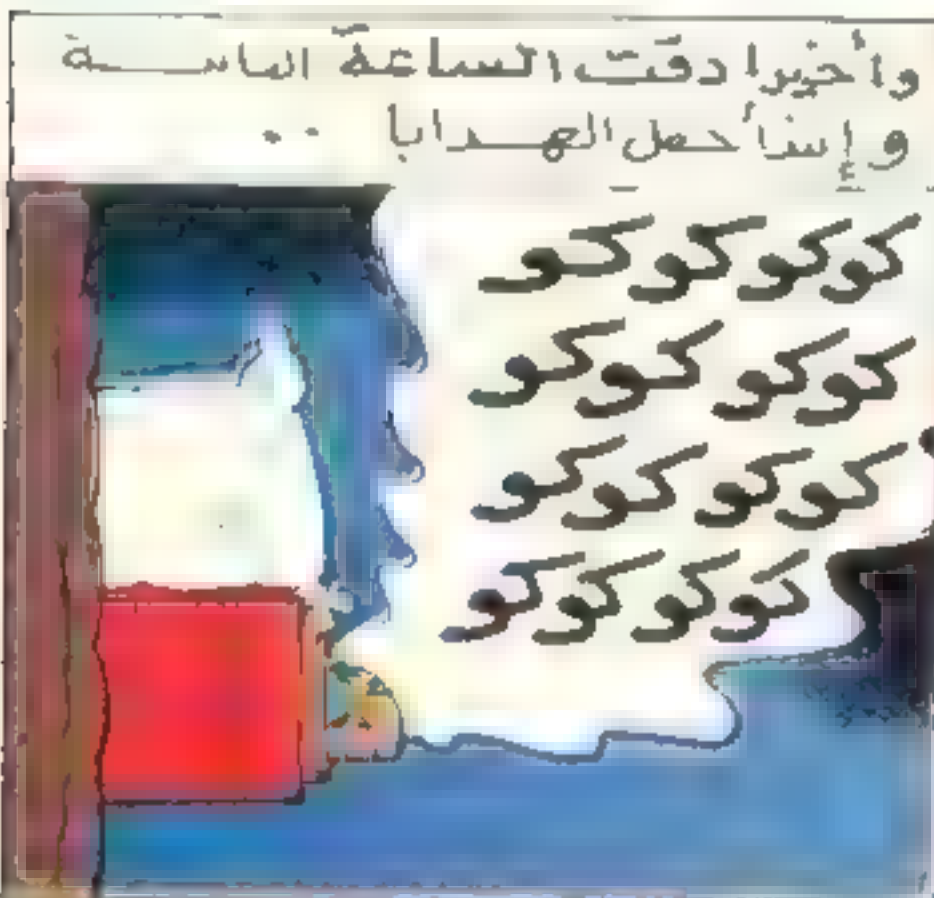 وأخيرا دقت الساعة
و حمل الهدايا ..
كوكو كوكو
كوكو كوكو
كوكو كوكو
كوكو كوكو